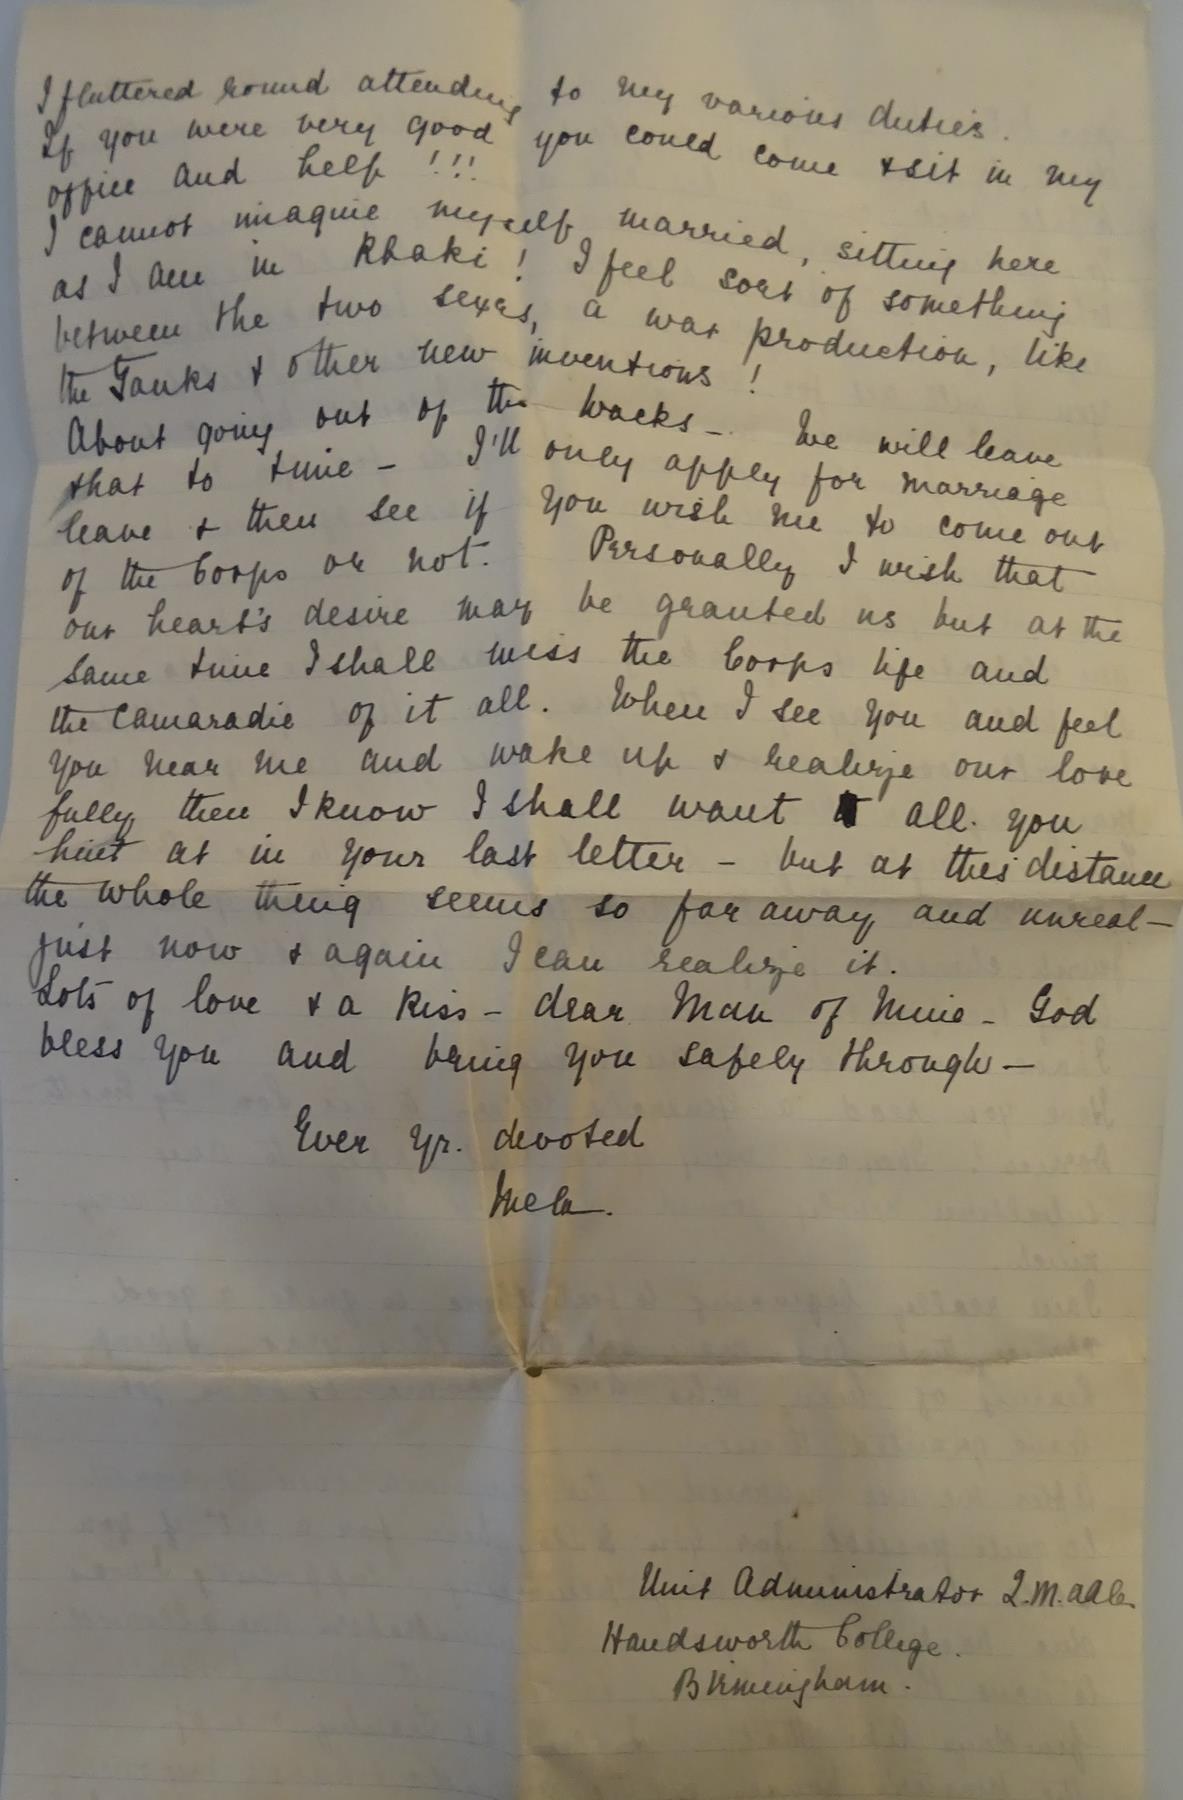 I fluttered round attending to my various duties.
If you were very good you could come & sit in my
office and help !!!
I cannot imagine myself married, sitting here
as I am in Khaki! I feel sort of something
between the two sexes, a war production, like
the Tanks & other new inventions!
About going out of the Waacks - We will leave
that to time - I'll only apply for marriage
leave & then see if you wish me to come out
of the Corps or not. Personally I wish that
our heart's desire may be granted us but at the
same time I shall miss the Corps life and
the Camaradie of it all. When I see you and feel
you near me and wake up & realize our love
fully then I know I shall want all you
hint at in your last letter - but at this distance
the whole thing seems so far away and unreal -
just now & again I can realize it.
Lots of love & a Kiss - dear Man of Mine - God
bless you and bring you safely through -
Ever yr. devoted
Unit Administrator Q.M.AAC.
Handsworth College.
Birmingham.